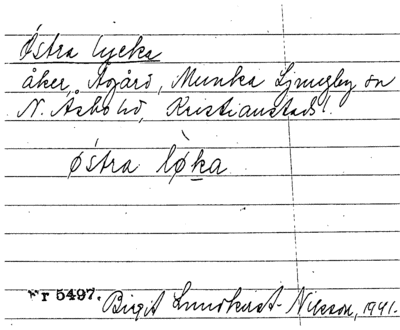 Östra lycka
åker, Ågård, Munka Ljungby sn
N. Åsbo hd, Kristianstads l.
östra lø̀ka
Nr 5497. Birgit Lundkvist-Nilsson, 1941.